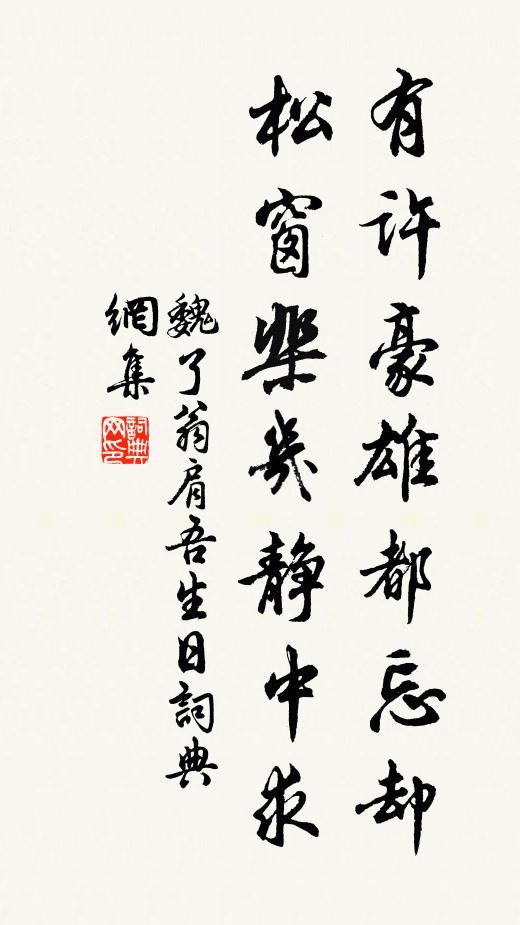 有許豪雄都忘却
松窗棐几靜中求
魏了翁肩吾生日詞典
網集
詞典
网印